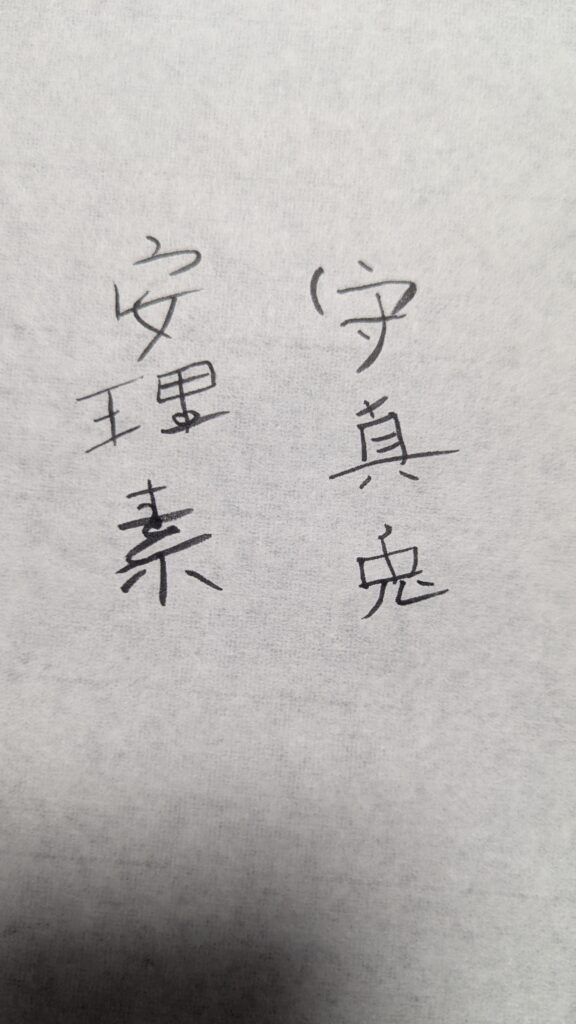 守真兎
安理素